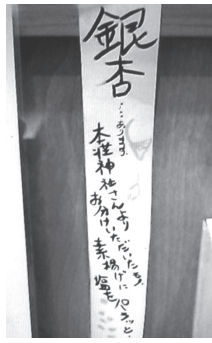 銀杏
……あります。
本荘神社さんより
お分けいただいたもの。
素揚げに
塩を
パラッと。